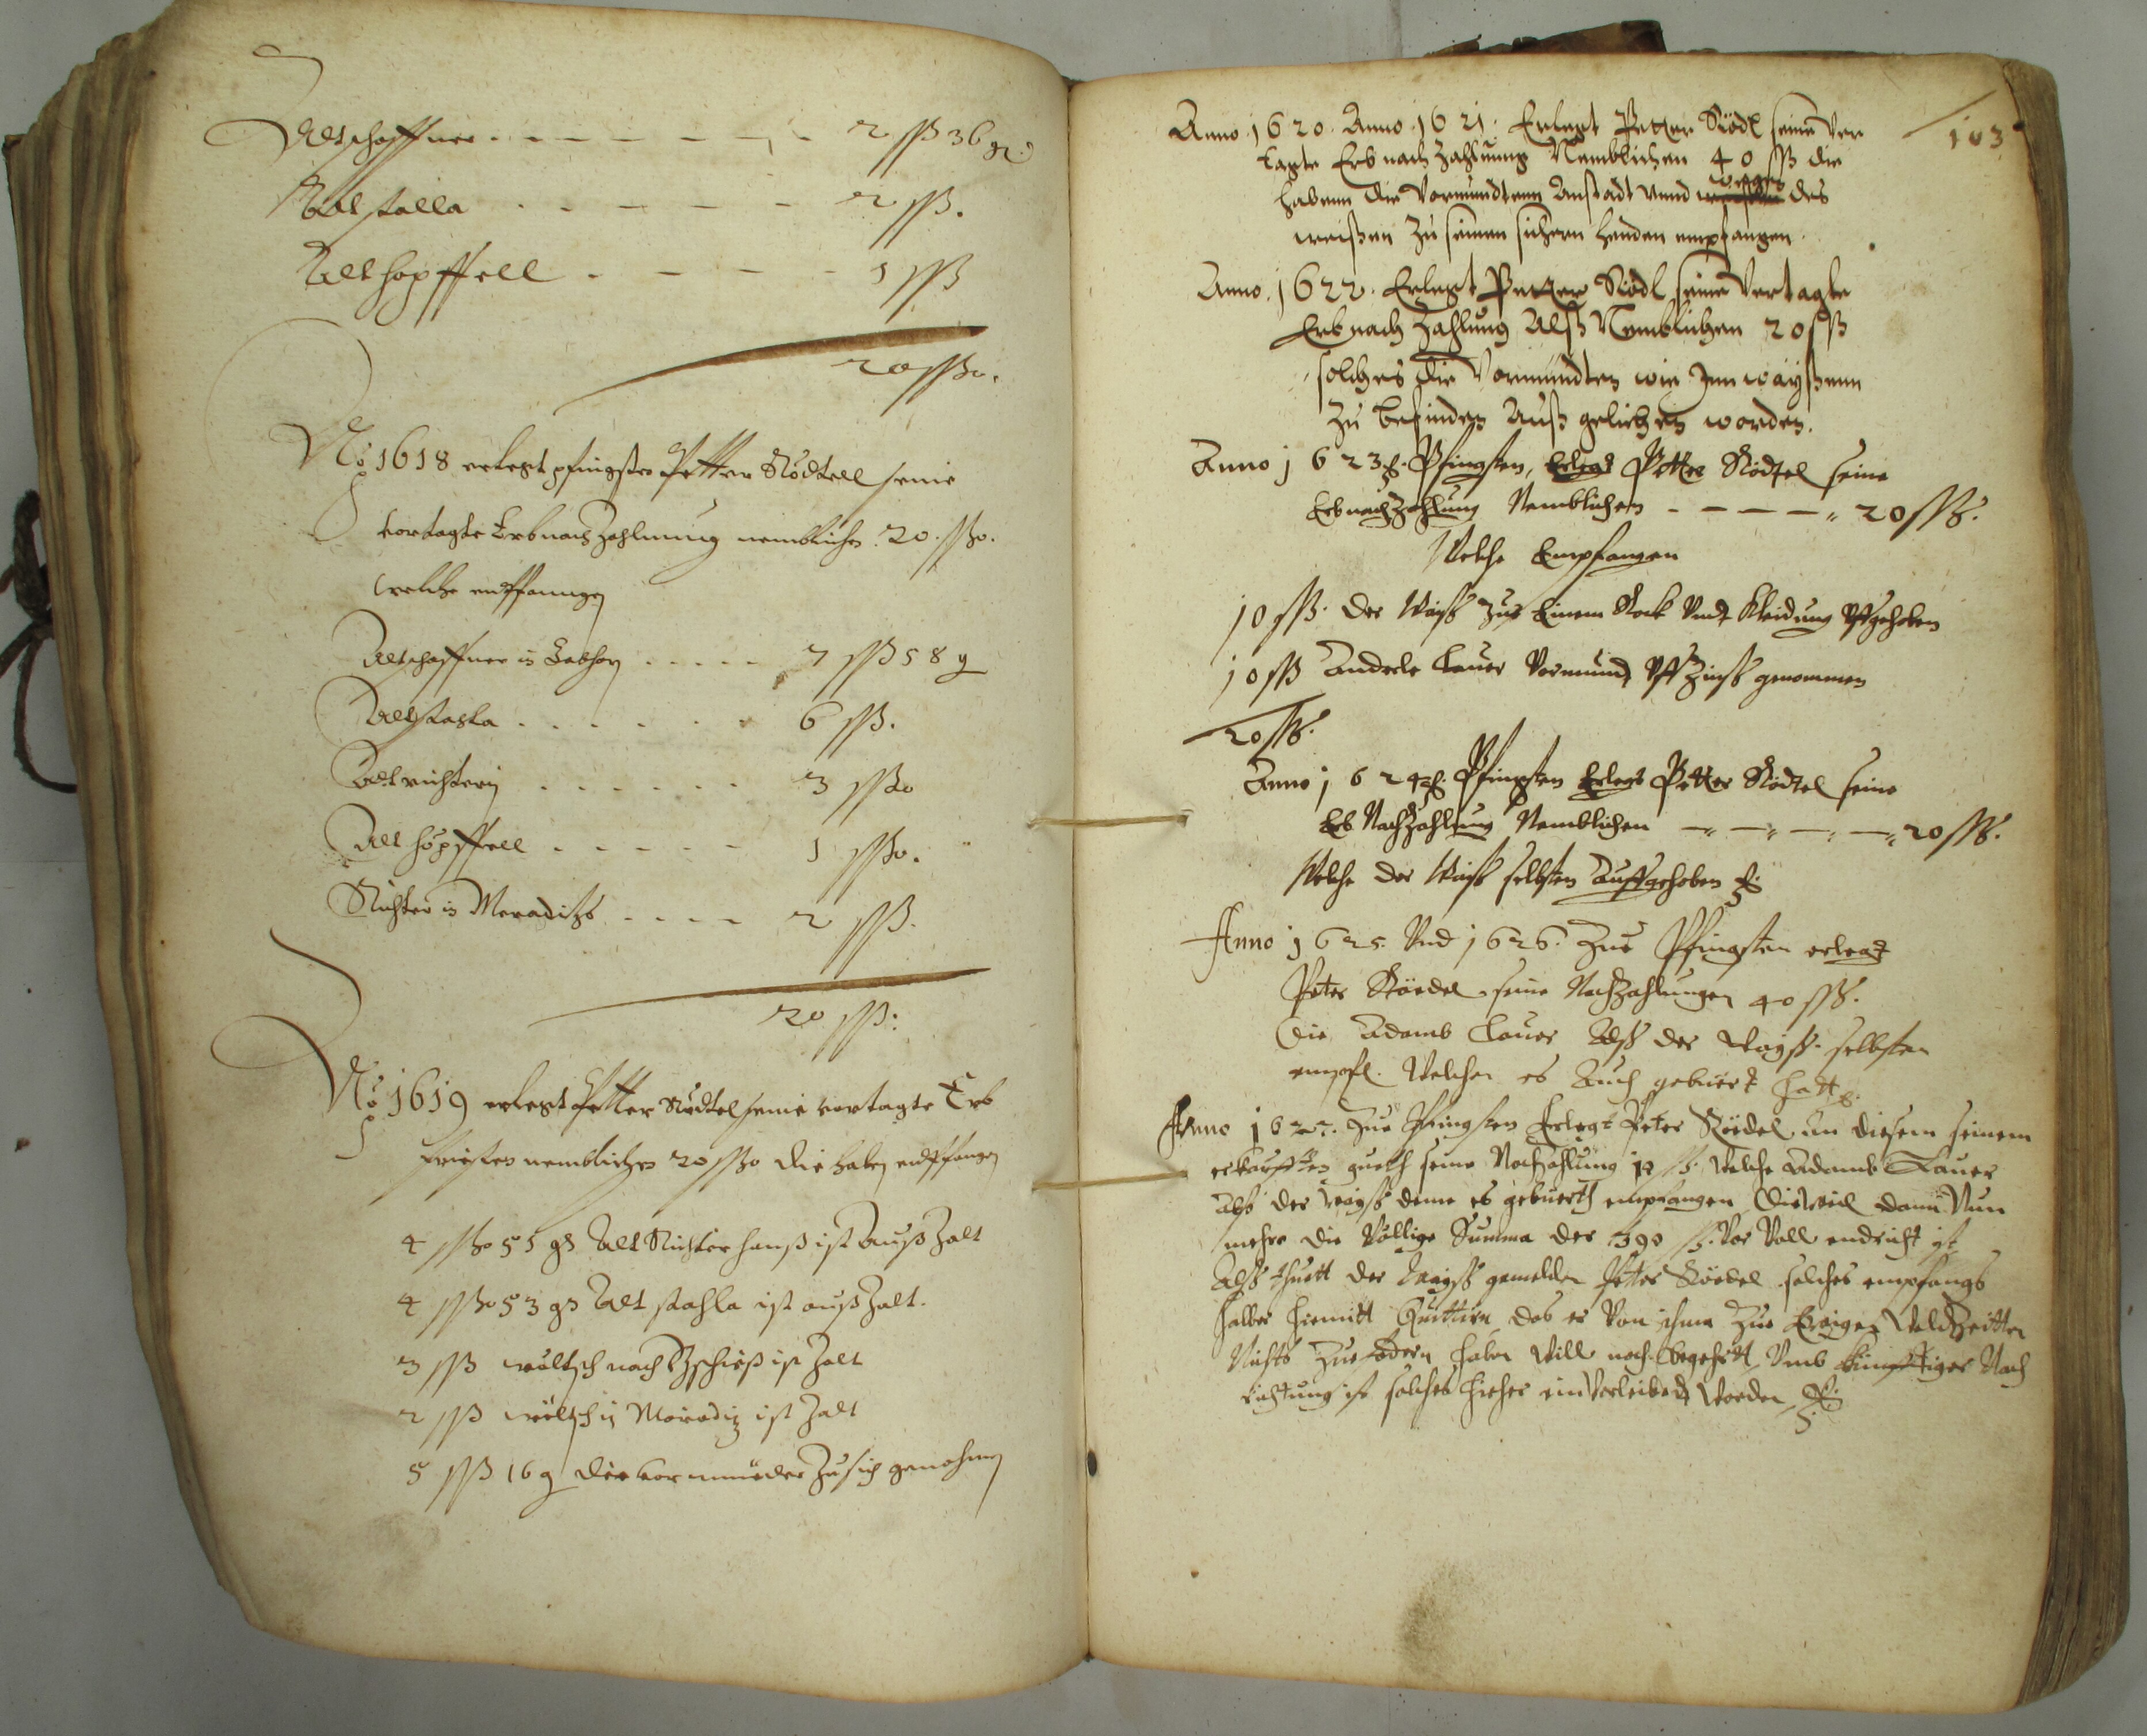 Altschaffner - - - - - - - 2 ßß 36 gr
Altstalla - - - - - 2 ßß.
Althopffell - - - - 1 ßß
20 ßßo.
Ao 1618 erlegt pfingsten Petter Rödtell seine
vortagte Erbnachzahlunng nemblichen 20 ßßo.
welche entpfanngen
Altschaffner in - - - - - 7 ßß 58 g
Altstahla - - - - - - 6 ßß.
Altrichterin - - - - - - 3 ßßo
Althöpffell - - - - - 1 ßßo.
Richter in Meraditz - - - - 2 ßß.
20 ßß.
Ao 1619 erlegt Petter Rödtel seine vortagte Erb
fristen nemblichen 20 ßßo die haben entpfangen
4 ßßo 51 gr Alt Richter Hanß ist auß Zalt
4 ßßo 53 gr Alt stahla ist auß Zalt.
3 ßß wöltsch nach ist Zalt
2 ßß wöltsch in Moraditz ist Zalt
5 ßß 16 g die vormünder Zu sich genohmen
103
Anno 1620. Anno 1621. Erlegt Petter Rödl seine Ver
tagte Erb nach Zahlunng Nemblichen 40 ßß die
habenn die Vormundtenn Anstadt unnd wegen des
weißen Zu seinen sichern henden empfangen.
Anno. 1622. Erlegt Petter Rödl seine Vertagte
Erbnach Zahlung Alß Nemblichen 20 ßß
solches die Vormundten wie Inn wayßenn
Zu befinden Auß gelichen worden.
Anno 1623 Pfingsten, Erlegt Petter Rödtel seine
Erbnachzahlung Nemblichen - - - - - 20 ßß.
Welche Empfangen
10 ßß. der Waiß zue Einem Rock Undt Kleidung Uffgehoben
10 ßß Anderle Lauer Vormundt Uff Zinß genommen
20 ßß.
Anno 1624 Pfingsten Erlegt Petter Rödtel seine
Erb Nachzahlung Nemblichen - - - - 20 ßß.
Welche der Waiß selbsten Auffgehoben
Anno 1625. Und 1626. Zue Pfingsten erlegt
Peter Röedel seine Nachzahlungen 40 ßß.
Die Adamb Lauer Alß der Waiß selbsten
empf. Welchen es Auch gebüert hatt
Anno 1627. Zue Pfingsten Erlegt Peter Röedel an diesem seinem
erkaufften guett seine Nachzahlung 10 ß. Welche Adamb Lauer
Alß der waiß deme es gebüertt empfangen Dieweil dann Nun
mehre die Völlige Summa der 390 ß. Vor Voll endricht ist
Alß thuett der Waiß gemelden Petter Röedel solches empfangs
halber hiemitt Quittirn das er Von ihme Zue Ewigen Weldzeitten
Nichts Zue fodern haben will noch begehrt Umb künfftiger Nach
richtung ist solches hieher einVerleibet Worden